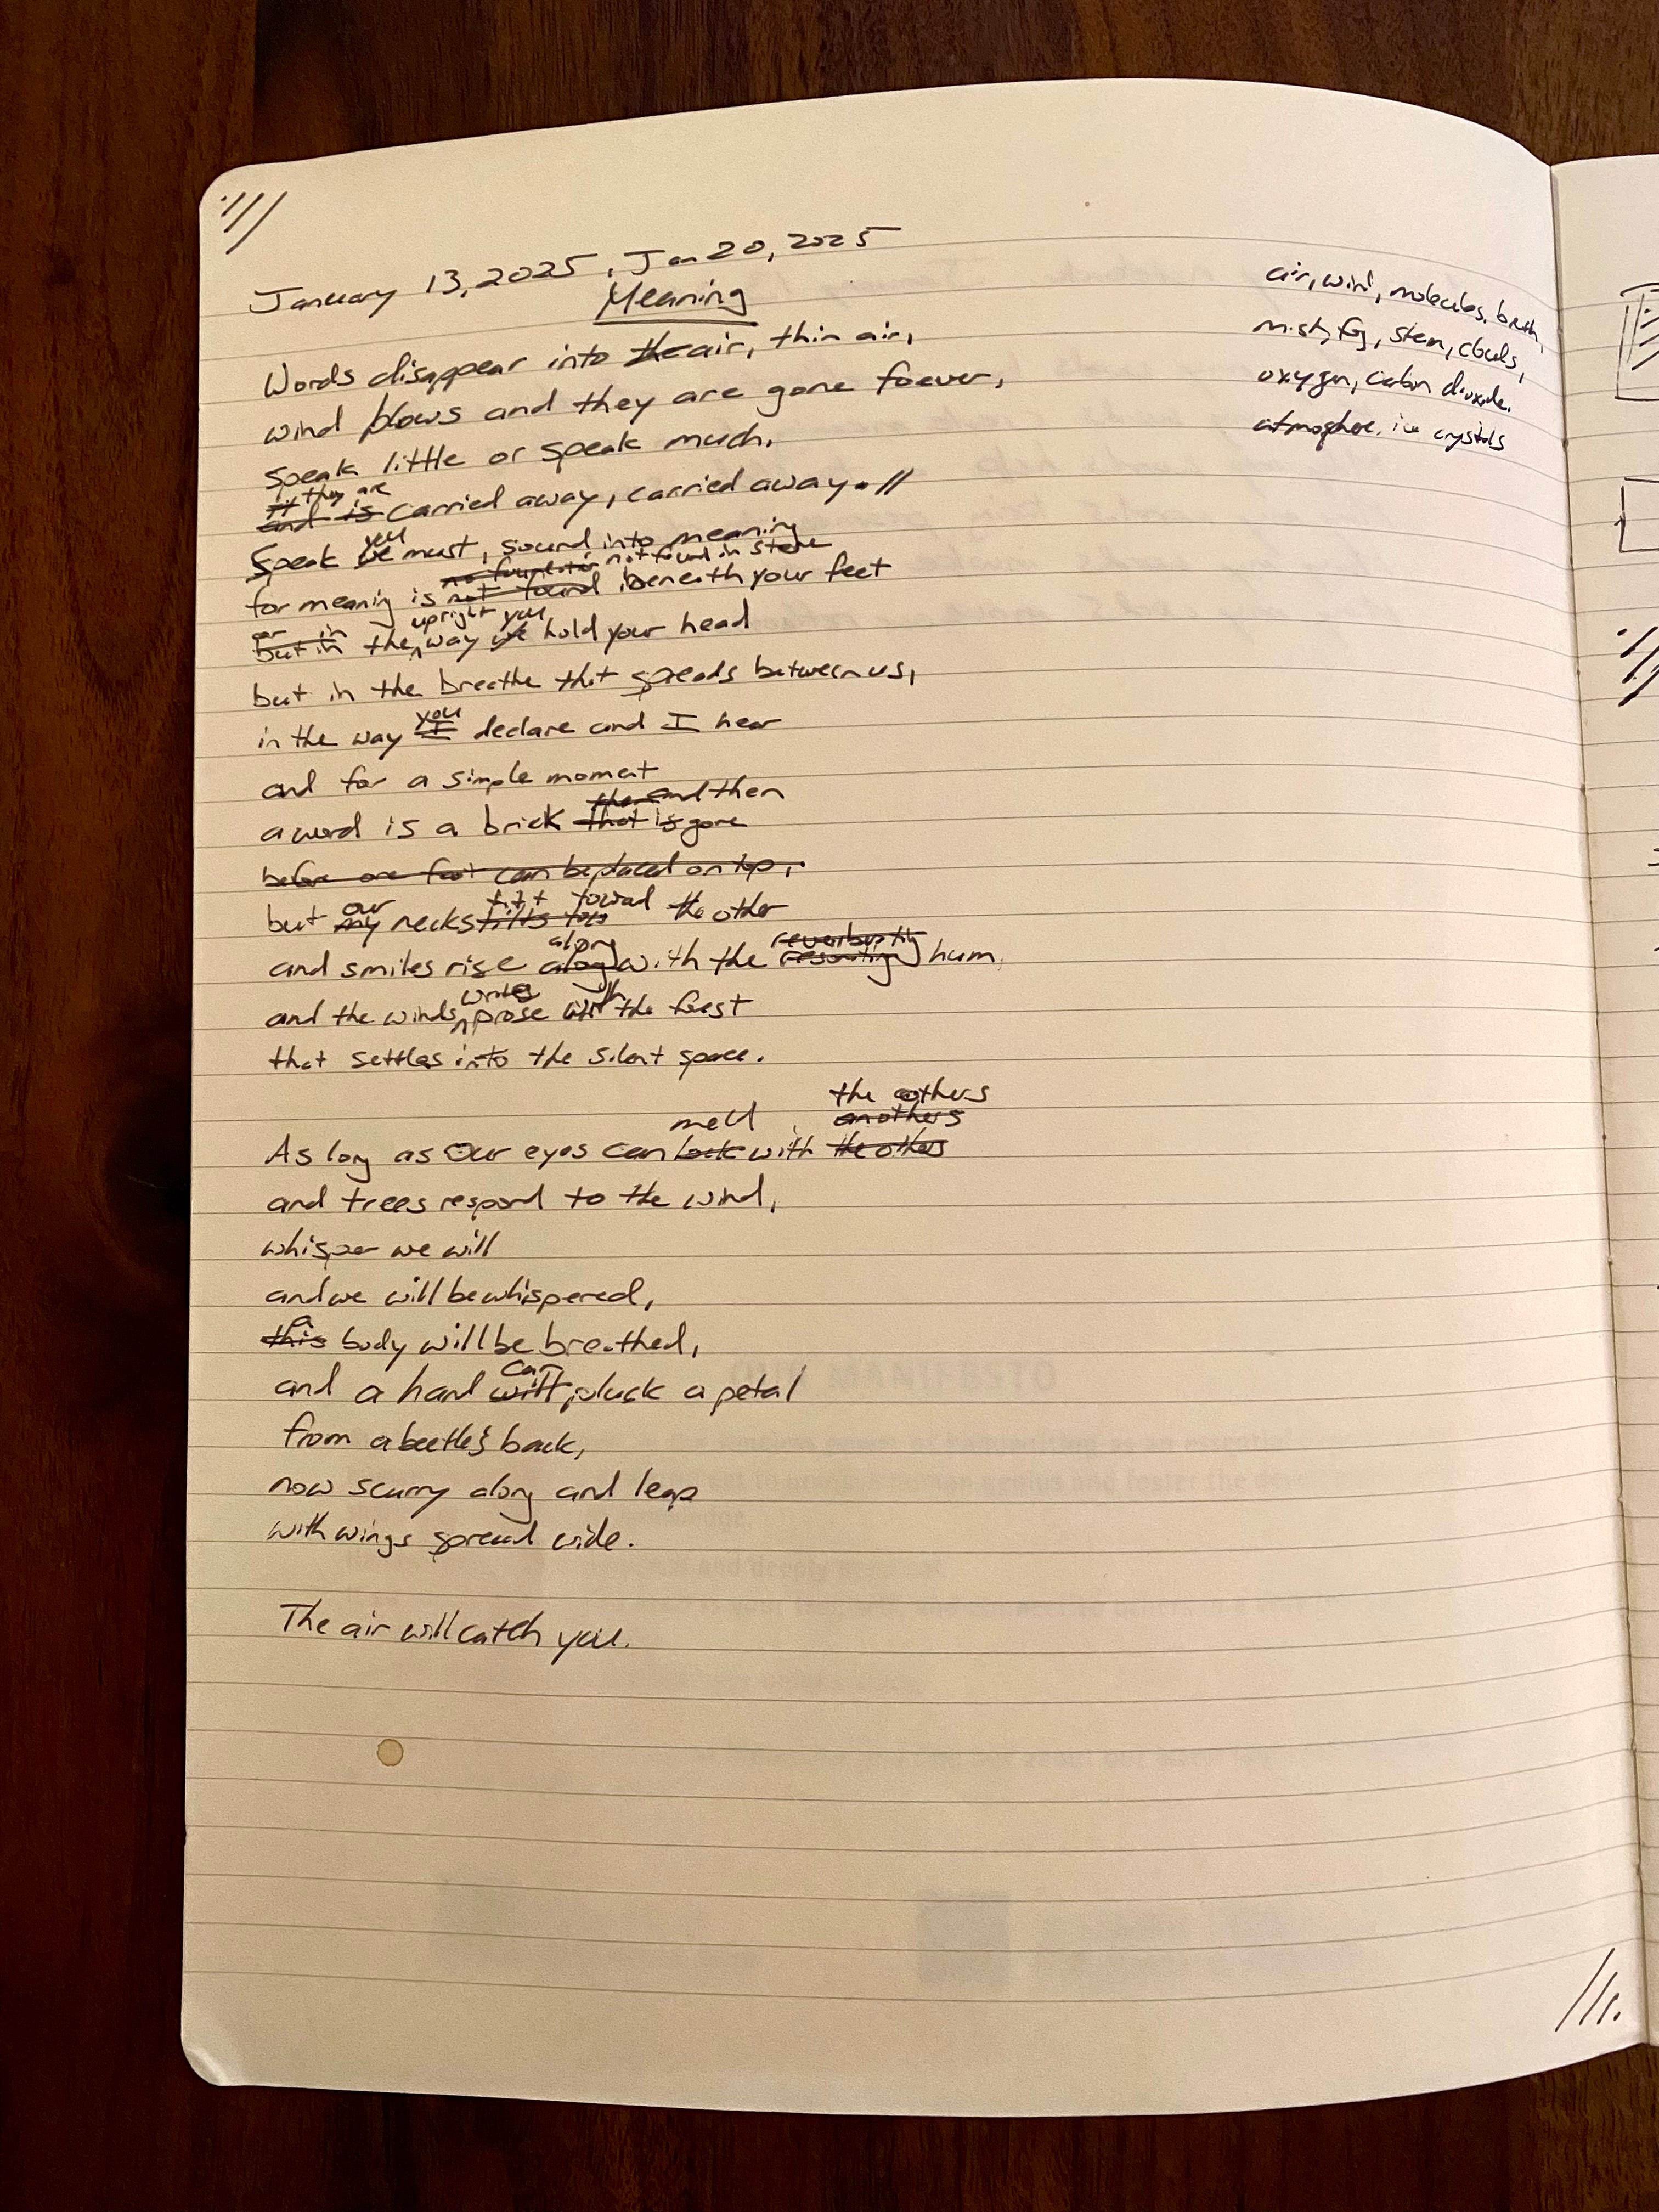 January 13, 2025, Jan 20, 2025
Meaning
Words disappear into the air, thin air,
wind blows and they are gone forever,
speak little or speak much,
they are
and is carried away, carried away. //
you
Speak we must, sound into meaning
no foundation not found in stone
for meaning is not found beneath your feet
or in upright you
but in the way we hold your head
but in the breathe that spreads between us,
in the way I declare and I hear
you
and for a simple moment
and then
a word is a brick that is gone
before one foot can be placed on top,
our tilt toward
but my necks tilts the other
along reverberating
and smiles rise along with the resonating hum,
writes with
and the winds prose the forest
that settles into the silent space.
the others
meld anothers
As long as Our eyes can lock with the others
and trees respond to the wind,
whisper we will
and we will be whispered,
a
this body will be breathed,
can
and a hand will pluck a petal
from a beetle's back,
now scurry along and leap
with wings spread wide.
The air will catch you.
air, wind, molecules, breath,
mist, fog, steam, clouds,
oxygen, carbon dioxide,
atmosphere, ice crystals